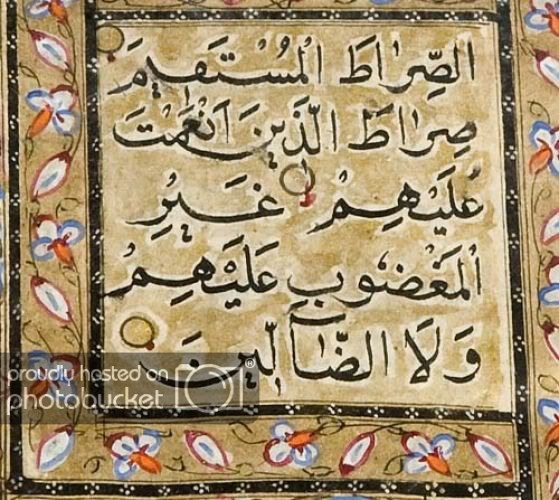 الصِّرٰاطَ الْمُسْتَقٖيمَ
صِرٰاطَ الَّذٖينَ اَنْعَمْتَ
عَلَيْهِمْ غَيْرِ
الْمَغْضُوبِ عَلَيْهِمْ
وَلَا الضَّٓالّٖينَ
proudly hosted on
photobucket